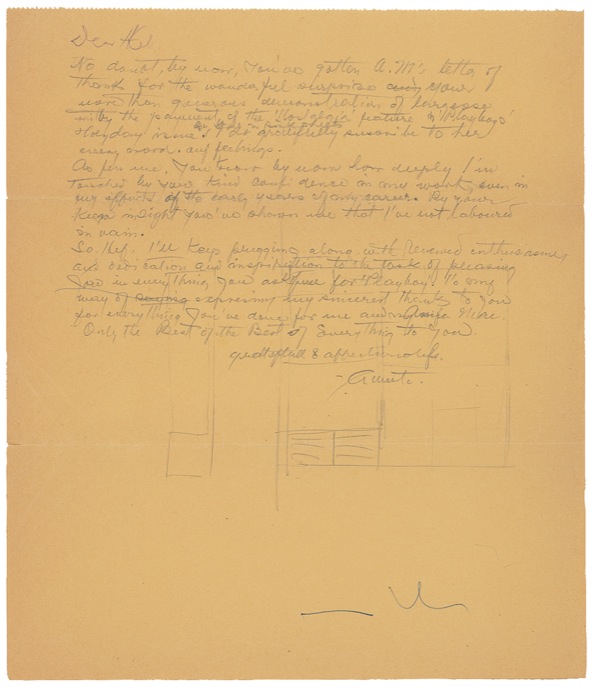 Dear Hef.
No doubt, by now, You've gotten A.M's letter of
thanks for the wonderful surprise your
more than generous demonstration of largesse
by the payment of the 'Nostalgia' feature in 'Playboys'
Holyday issue. I do gratefully subscribe to her
every word and feelings.
As for me, You know by now how deeply I'm
touched by your kind confidence in my work, even in
my efforts of the early years of my career. By your
keen insight You've shown me that I've not laboured
in vain.
So Hef. I'll keep plugging along with renewed enthusiasms
and dedication and inspiration to the task of pleasing
You in everything You ask me for Playboy. It's my
way of saying expressing my sincerest thanks to You
for everything You've done for me and Mine.
Only the Best of the Best of Everything to You.
gratefull & affectionately.